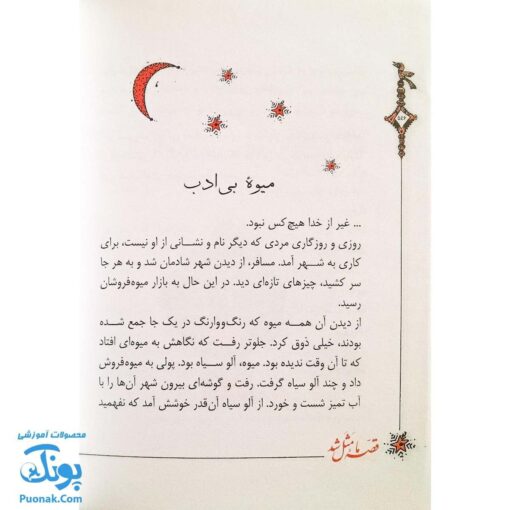 میوهٔ بی‌ادب
... غیر از خدا هیچ‌کس نبود.
روزی و روزگاری مردی که دیگر نام و نشانی از او نیست، برای
کاری به شهر آمد. مسافر، از دیدن شهر شادمان شد و به هر جا
سر کشید، چیزهای تازه‌ای دید. در این حال به بازار میوه‌فروشان
رسید.
از دیدن آن همه میوه که رنگ‌ووارنگ در یک جا جمع شده
بودند، خیلی ذوق کرد. جلوتر رفت که نگاهش به میوه‌ای افتاد
که تا آن وقت ندیده بود. میوه، آلو سیاه بود. پولی به میوه‌فروش
داد و چند آلو سیاه گرفت. رفت و گوشه‌ای بیرون شهر آن‌ها را با
آب تمیز شست و خورد. از آلو سیاه آن‌قدر خوشش آمد که نفهمید
قصه ما مثل شد
محصولات آموزشی
پونک
Puonak.Com